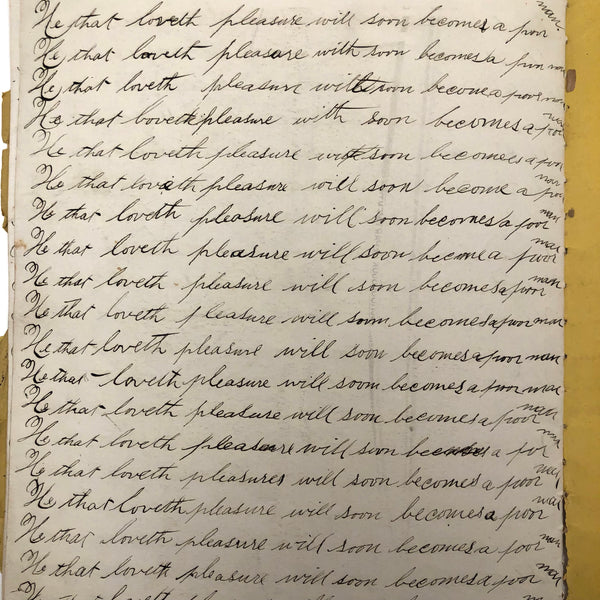 He that loveth pleasure will soon becomes a poor man.
He that loveth pleasure with soon becomes a poor man
He that loveth pleasure will soon become a poor man
He that loveth pleasure with soon becomes a poor man
He that loveth pleasure will soon becomes a poor man
He that loveth pleasure will soon become a poor man
He that loveth pleasure will soon becomes a poor man
He that loveth pleasure will soon become a poor man
He that loveth pleasure will soon becomes a poor man
He that loveth pleasure will soon becomes a poor man
He that loveth pleasure will soon becomes a poor man
He that loveth pleasure will soon becomes a poor man
He that loveth pleasure will soon becomes a poor man
He that loveth pleasure will soon becomes a poor man
He that loveth pleasures will soon becomes a poor man
He that loveth pleasure will soon becomes a poor man
He that loveth pleasure will soon becomes a poor man
He that loveth pleasure will soon becomes a poor man
He that loveth pleasure will soon becomes a poor man